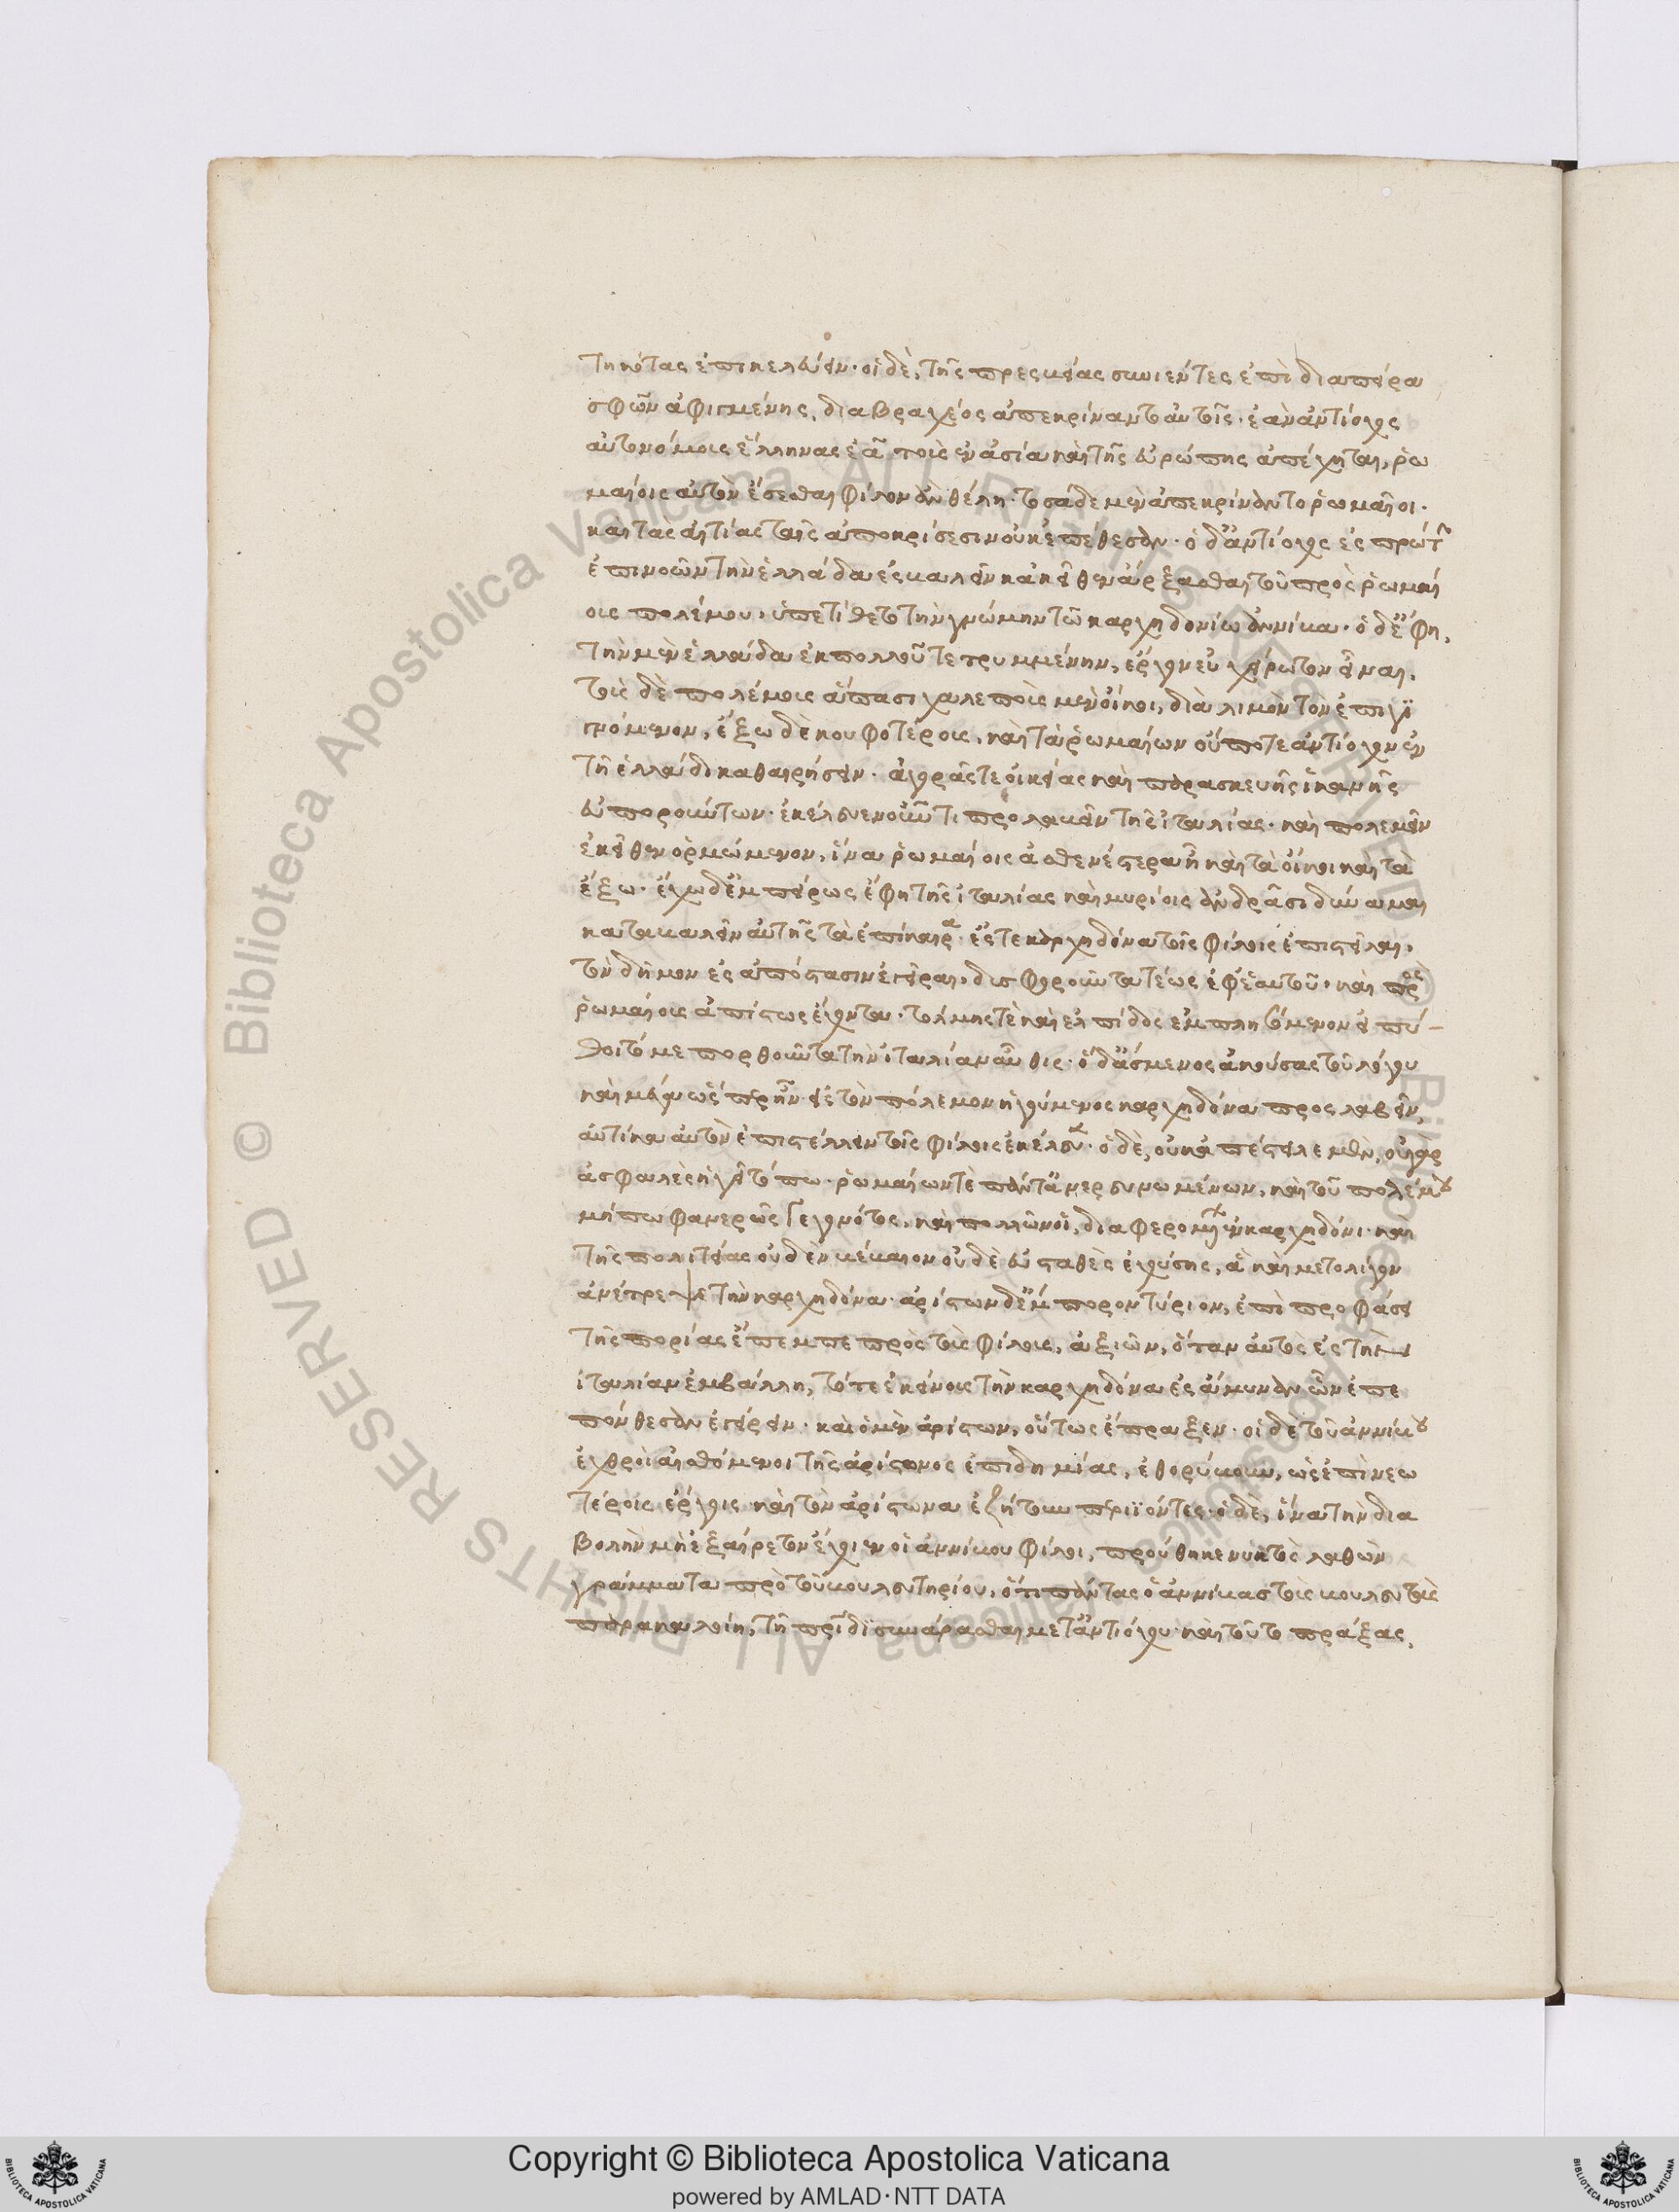 τηκότας ἐπικελεύειν· οἱ δὲ, τῆς πρεσβείας συνιέντες ἐπὶ διαπείρα
σφῶν ἀφιγμένης, διαβραχέος ἀπεκρίναντο αὐτοῖς· ἐὰν ἀντίοχος
αὐτονόμους ἕλληνας ἐᾶ τοὺς ἐν ἀσία καὶ τῆς εὐρώπης ἀπέχηται, ῥω
μαίοις αὐτὸν ἔσεσθαι φίλον ἂν θέλη· τοσάδε μὲν ἀπεκρίναντο ῥωμαῖοι·
καὶ τὰς αἰτίας ταῖς ἀποκρίσεσιν οὐκ ἐπέθεσαν· ὁ δ' ἀντίοχος ἐς πρώτ
ἐπινοῶν τὴν ἑλλάδα ἐσβαλεῖν κἀκεῖθεν ἄρξασθαι τοῦ πρὸς ῥωμαί
ους πολέμου, ὑπετίθετο τὴν γνώμην τῶ καρχηδονίω ἀννίβα· ὁ δ' ἔφη,
τὴν μὲν ἑλλάδα ἐκ πολλοῦ τετρυμμένην, ἔργον εὐχείρωτον εἶναι.
τοὺς δὲ πολέμους ἅπασι χαλεποὺς μὲν οἴκοι, διὰ λιμὸν τὸν ἐπιγι
γνόμενον, ἔξω δὲ κουφοτέρους, καὶ τὰ ῥωμαίων οὔποτε ἀντίοχον ἐν
τῆ ἑλλάδι καθαιρήσειν· ἀγορᾶς τε οἰκείας καὶ παρασκευῆς ἱκανῆς
εὐπορούντων· ἐκέλευεν οὖν τι προλαβεῖν τῆς ἰταλίας· καὶ πολεμεῖν
ἐκεῖθεν ὁρμώμενον, ἵνα ῥωμαίοις ἀσθενέστερα ἦ καὶ τὰ οἴκοι καὶ τὰ
ἔξω· ἔχω δ' ἐμπείρως ἔφη τῆς ἰταλίας καὶ μυρίοις ἀνδράσι δύναμαι
καταβαλεῖν αὐτῆς τὰ ἐπίκαιρα· ἔς τε καρχηδόνα τοῖς φίλοις ἐπιστεῖλαι,
τὸν δῆμον ἐς ἀπόστασιν ἐγεῖραι, δυσφοροῦντα τέως ἐφ' ἑαυτοῦ, καὶ πρὸς
ῥωμαίους ἀπίστως ἔχοντα· τόλμης τε καὶ ἐλπίδος ἐμπλησόμενον εἰ πύ-
θοιτό με πορθοῦντα τὴν ἰταλίαν αὖθις· ὁ δ' ἄσμενος ἀκούσας τοῦ λόγου
καὶ μέγα ὥσπερ ἦν εἰς τὸν πόλεμον ἡγούμενος καρχηδόνα προσλαβεῖν,
αὐτίκα αὐτὸν ἐπιστέλλειν τοῖς φίλοις ἐκέλευ· ὁ δὲ, οὐκ ἀπέστειλε μὲν, οὐ γὰρ
ἀσφαλὲς ἡγεῖτό πω· ῥωμαίων τὲ πάντα ἀνερευνωμένων, καὶ τοῦ πολέμου
μήπω φανερῶς γεγονότος, καὶ πολλῶν οἱ, διαφερομένων ἐν καρχηδόνι· καὶ
τῆς πολιτείας οὐδὲν βέβαιον οὐδὲ εὐσταθὲς ἐχούσης, ἃ καὶ μετολίγον
ἀνέτρεψε τὴν καρχηδόνα· ἀρίστωνα δ' ἔμπορον τύριον, ἐπὶ προφάσει
τῆς πορίας ἔπεμπε πρὸς τοὺς φίλους, ἀξιῶν, ὅταν αὐτὸς ἐς τὴν
ἰταλίαν ἐμβάλλη, τότε ἐκείνους τὴν καρχηδόνα ἐς ἄμυναν ὧν ἐπε
πόνθεσαν ἐγείρειν· καὶ ὁ μὲν ἀρίστων, οὕτως ἔπραξεν· οἱ δὲ τοῦ ἀννίβου
ἐχθροὶ αἰσθόμενοι τῆς ἀρίστωνος ἐπιδημίας, ἐθορύβουν, ὡς ἐπὶ νεω
τέροις ἔργοις καὶ τὸν ἀρίστωνα ἐζήτουν περιϊόντες· ὁ δὲ, ἵνα τὴν δια
βολὴν μὴ ἐξαίρετον ἔχοιεν οἱ ἀννίβου φίλοι, προὔθηκε νυκτὸς λαθὼν
γράμματα πρὸ τοῦ βουλευτηρίου, ὅτι πάντας ὁ ἀννίβας τοὺς βουλευτὰς
παρακαλοίη, τῆ πατρίδι συνάρασθαι μετ' ἀντιόχου· καὶ τοῦτο πράξας,